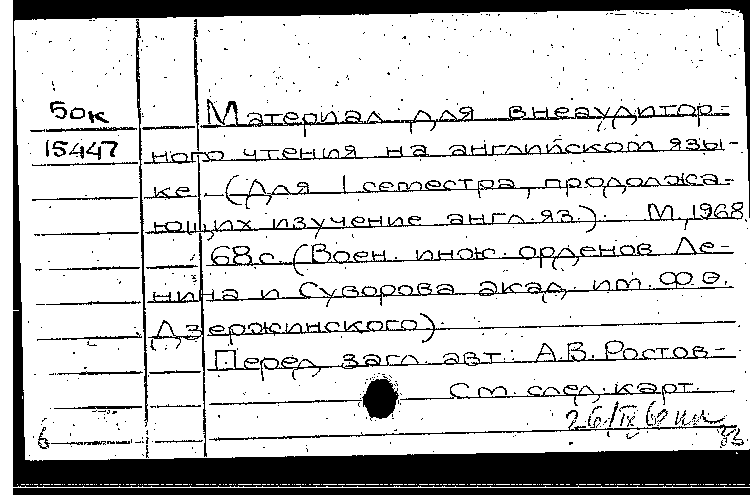 1
50к Материал для внеаудитор=
15447 ного чтения на английском язы-
ке. (Для I семестра, продолжа-
ющих изучение англ.яз.). М.,1968
68с. (Воен. инж. орденов Ле-
нина и Суворова акад. им. Ф.Э.
Дзержинского).
Перед загл. авт.: А.В. Ростов-
См. след. карт.
6